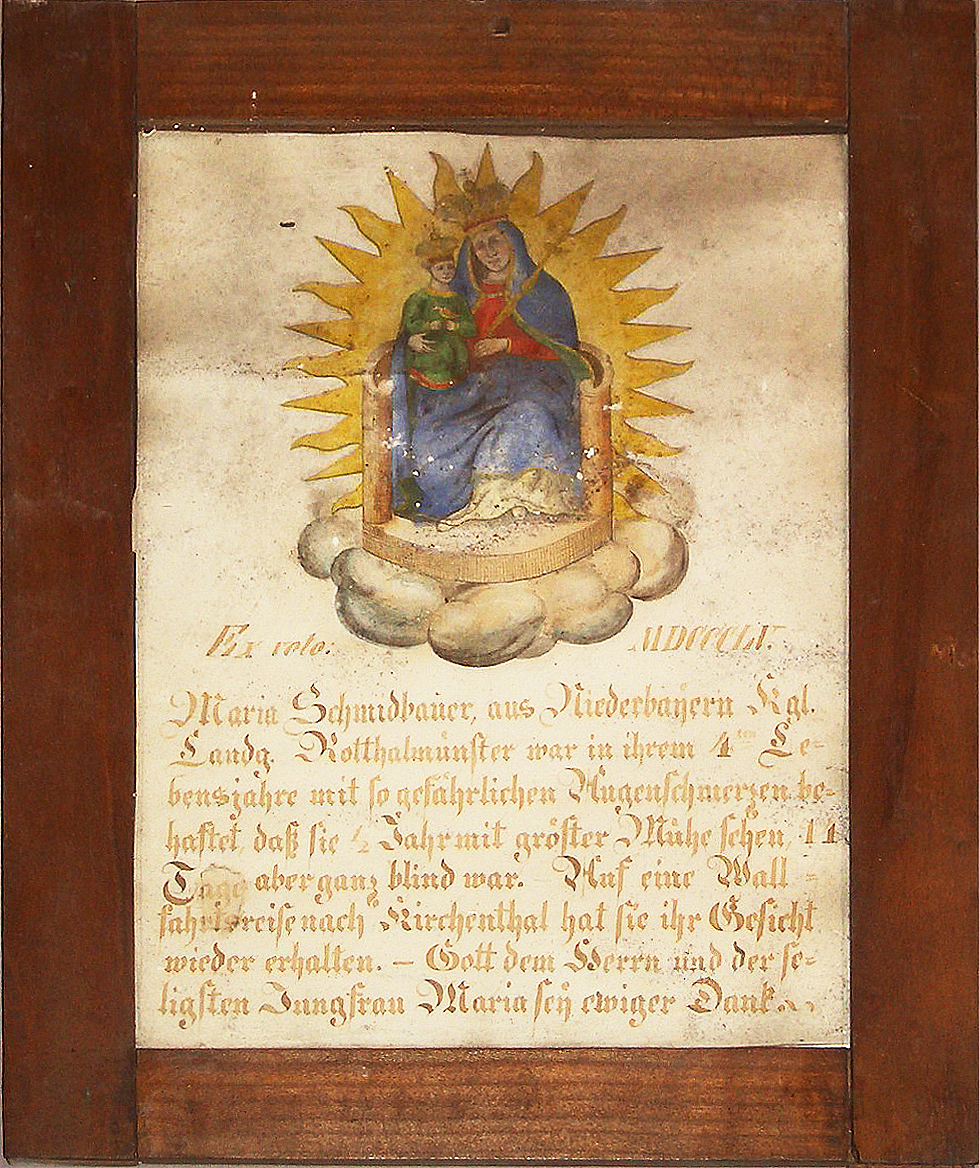 Ex voto. MDCCCLV.
Maria Schmidbauer, aus Niederbayern Kgl.
Landg. Rotthalmünster war in ihrem 4ten Le-
bensjahre mit so gefährlichen Augenschmerzen be-
haftet, daß sie ½ Jahr mit größter Mühe sehen, 11
Tage aber ganz blind war. Auf eine Wall-
fahrtsreise nach Kirchenthal hat sie ihr Gesicht
wieder erhalten. – Gott dem Herrn und der se-
ligsten Jungfrau Maria sey ewiger Dank.